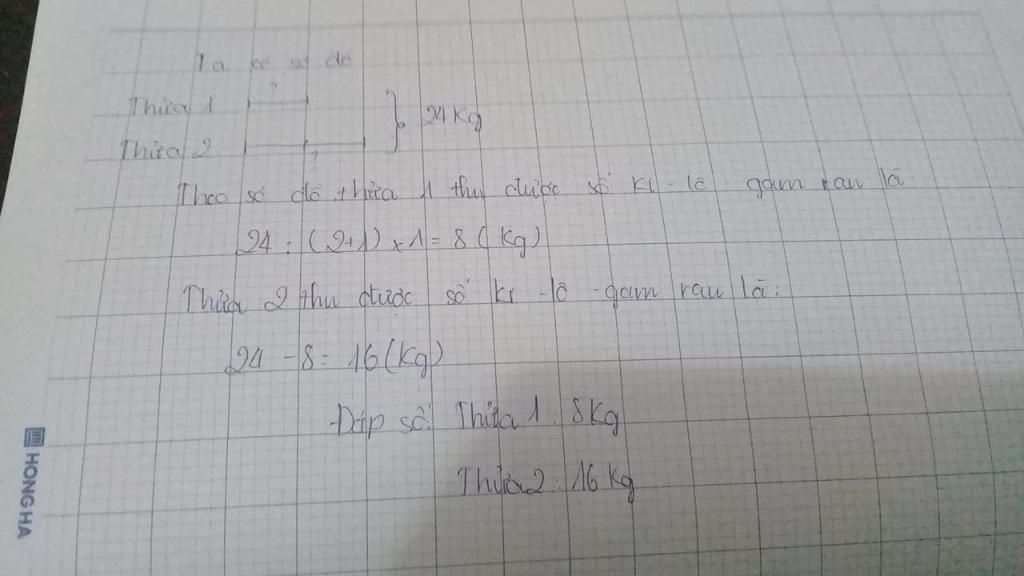 Ta có sơ đồ
?
Thửa 1
24 Kg
Thửa 2
?
Theo sơ đồ, thửa 1 thu được số ki-lô gam rau là:
24 : (2+1) x 1 = 8 (Kg)
Thửa 2 thu được số ki-lô-gam rau là:
24 - 8 = 16 (Kg)
Đáp số: Thửa 1: 8 Kg
Thửa 2: 16 Kg
HONG HA